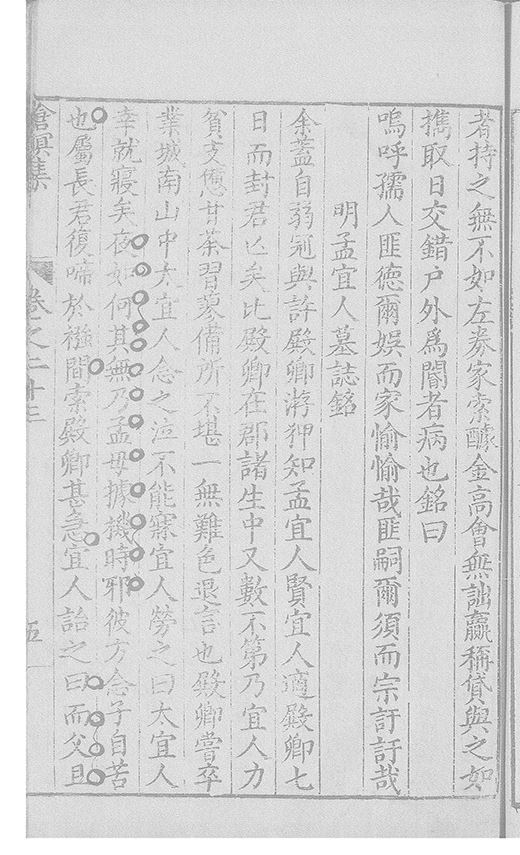 者持之無不如左券家索醵金高會無詘贏稱貸與之如
擕取日交錯户外爲閽者病也銘曰
嗚呼孺人匪德爾娱而家愉愉哉匪嗣爾須而宗訏訏哉
明孟宜人墓誌銘
余蓋自弱冠與許殿卿游狎知孟宜人賢宜人適殿卿七
日而封君亾矣比殿卿在郡諸生中又數不第乃宜人力
貧支憊甘荼習蓼備所不堪一無難色退言也殿卿嘗卒
業城南山中太宜人念之泣不能寐宜人勞之曰太宜人
幸就寢矣夜如何其無乃孟母據機時邪彼方念子自苦
也屬長君復啼於襁間索殿卿甚急宜人詒之曰而父且
滄溟集
卷之二十三
五